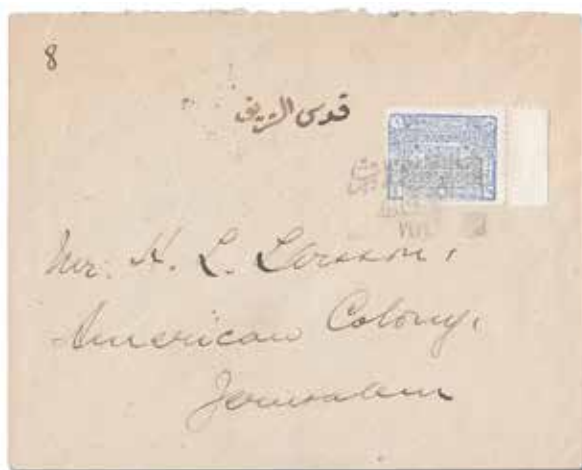 8
قدس الشريف
Mr. H. L. Larsson,
American Colony,
Jerusalem